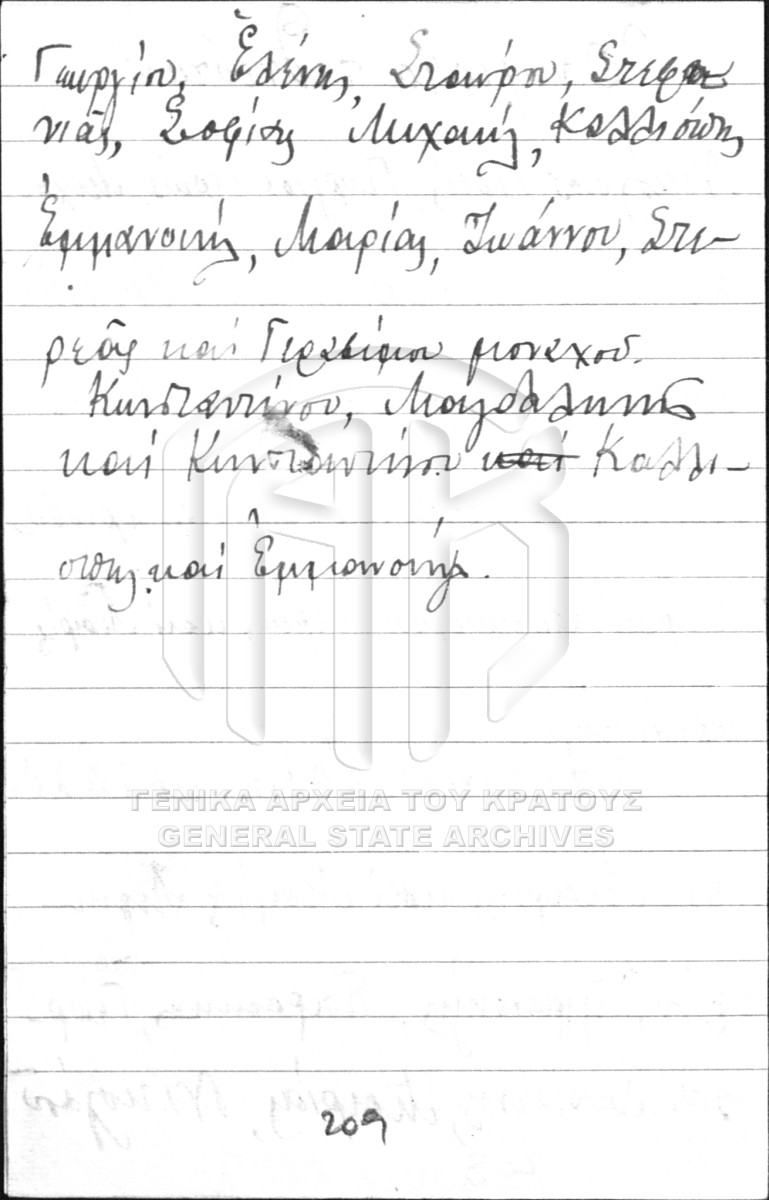 Γεωργίου, Ἑλένης, Σταύρου, Στεφα
νιᾶς, Σοφίας Μιχαήλ, Καλλιόπης
Ἐμμανουήλ, Μαρίας, Ἰωάννου, Στε-
ρεᾶς καί Γερασίμου μοναχοῦ.
Κωνσταντίνου, Μαγδαληνῆς
καί Κωνσταντίνου καί Καλλι-
όπης καί Ἐμμανουήλ.
ΓΕΝΙΚΑ ΑΡΧΕΙΑ ΤΟΥ ΚΡΑΤΟΥΣ
GENERAL STATE ARCHIVES
209